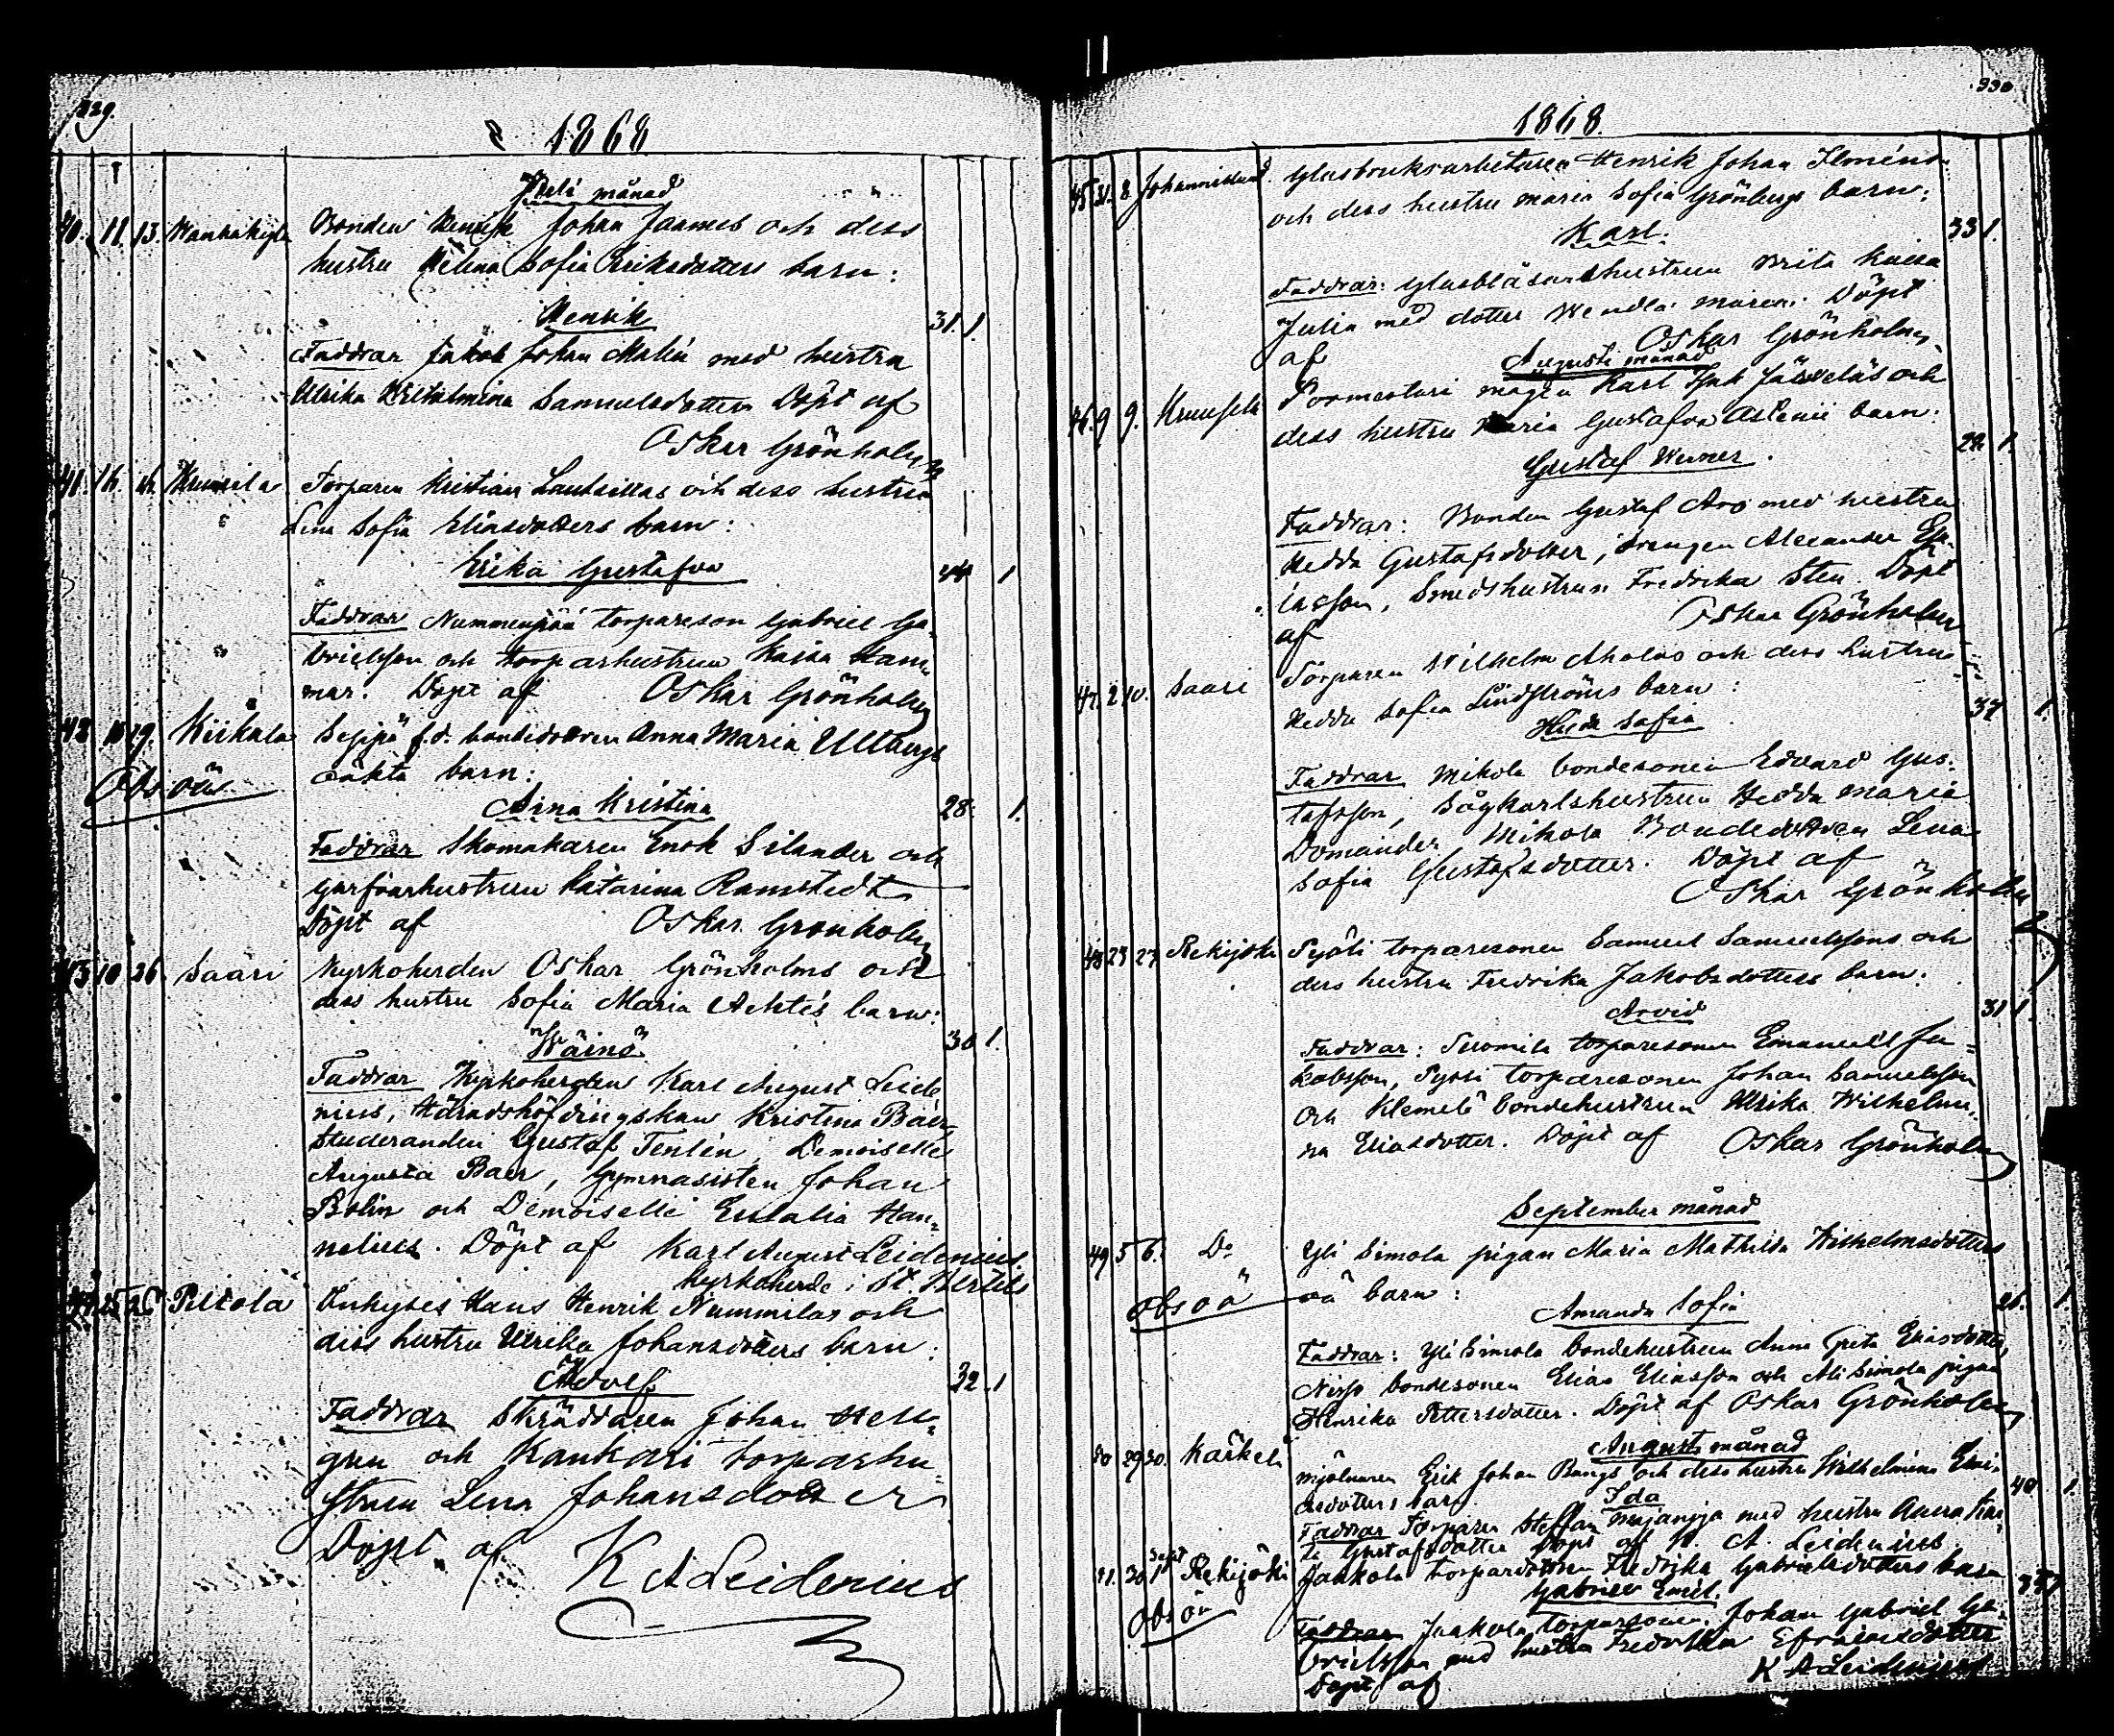 329.
1868
Juli månad
40. 11. 13. Wanhakylä Bonden Henrik Johan Jaamos och dess
hustru Helena Sofia Eriksdotters barn:
Henrik
31. 1
Faddrar Jakob Johan Malin med hustru
Ulrika Wilhelmina Samuelsdotter. Döpt af
Oskar Grönholm
41. 16. Kruusila Torparen Kristian och dess hustru
Lena Sofia Eliasdotters barn:
Erika Gustafva
44 1
Faddrar Nummenpää torpareson Gabriel Ga-
brielsson och torparhustrun Kaisa Ham-
mar. Döpt af Oskar Grönholm
42 19. Kiikala f.d. bondedottren Anna Maria Ullbergs
Obs. oä oäkta barn:
Aina Kristina
28. 1.
Faddrar Skomakaren Enok Silander och
garfvarhustrun Katarina Ramstedt
Döpt af Oskar Grönholm
43 10 26. Saari Kyrkoherden Oskar Grönholms och
dess hustru Sofia Maria Achtés barn:
Wäinö
30 1.
Faddrar Kyrkoherden Karl August Leide
nius, Häradshöfdingskan Kristina Baer,
Studeranden Gustaf Tenlén, Demoiselle
Augusta Baer, Gymnasisten Johan
Bolin och Demoiselle Eulalia Han-
nelius. Döpt af Karl August Leidenius.
Kyrkoherde i St. Bertils
44 25 26 Peltola Inhyses Hans Henrik Nummilas och
dess hustru Ulrika Johansdotters barn:
Adolf
32. 1
Faddrar Skräddaren Johan Hell-
gren och Kankari torparhu-
strun Lena Johansdotter
Döpt af K A Leidenius
330
1868.
45 31. 8. Johannislund. Glasbruksarbetaren Henrik Johan Ilméns
och dess hustru Maria Sofia Grönbergs barn:
Karl.
33 1.
Faddrar: Glasblåsarehustrun Brita Kaisa
Julin med dotter Wendla Maria. Döpt
af Oskar Grönholm.
Augusti månad
46. 9 9. Kruusila Karl Isak Järveläs och
dess hustru Maria Gustafva barn:
Gustaf Werner.
29. 1.
Faddrar: Bonden Gustaf Aro med hustru
Hedda Gustafsdotter, drängen Alexander Eli-
iasson, Smedshustrun Fredrika Sten. Döpt
af Oskar Grönholm
47. 2 10. Saari Torparen Wilhelm Aholas och dess hustru
Hedda Sofia Lindströms barn:
Hilda Sofia
37 1.
Faddrar Mikola bondesonen Edvard Gus-
tafsson, Sågkarlshustrun Hedda Maria
Domander Mikola Bondedottren Lena
Sofia Gustafsdotter. Döpt af
Oskar Grönholm
48 23 23. Rekijoki Pyöli torparesonen Samuel Samuelssons och
dess hustru Fredrika Jakobsdotters barn:
Arvid
31 1.
Faddrar: Suomela torparesonen Emanuel Ja-
kobsson, torparesonen Johan Samuelsson
och Klemelä bondehustrun Ulrika Wilhelmi-
na Eliasdotter. Döpt af Oskar Grönholm
September månad
49 5 6. Do Yli Simola pigan Maria Mathilda Wilhelmsdotters
Obs oä oä barn:
Amanda Sofia
26. 1.
Faddrar: Yli Simola bondehustrun Anna Greta Eliasdotter,
bondesonen Elias Eliasson och Ali Simola pigan
Henrika Pettersdotter. Döpt af Oskar Grönholm
Augusti månad
50 29 30. Kärkelä Mjölnaren Erik Johan Bangs och dess hustru Wilhelmina Eli-
asdotters barn.
Ida
40 1.
Faddrar Torparen Steffan med hustru
Gustafsdotter Döpt af K. A. Leidenius
51. 30 Sept 1 Rekijoki Jaakola torpardottren Fredrika Gabrielsdotters barn
Obs oä Gabriel Emil.
Faddrar Jaakola torparesonen Johan Gabriel Ga-
brielsson med hustru Fredrika Efraimsdotter
Döpt af K A Leidenius